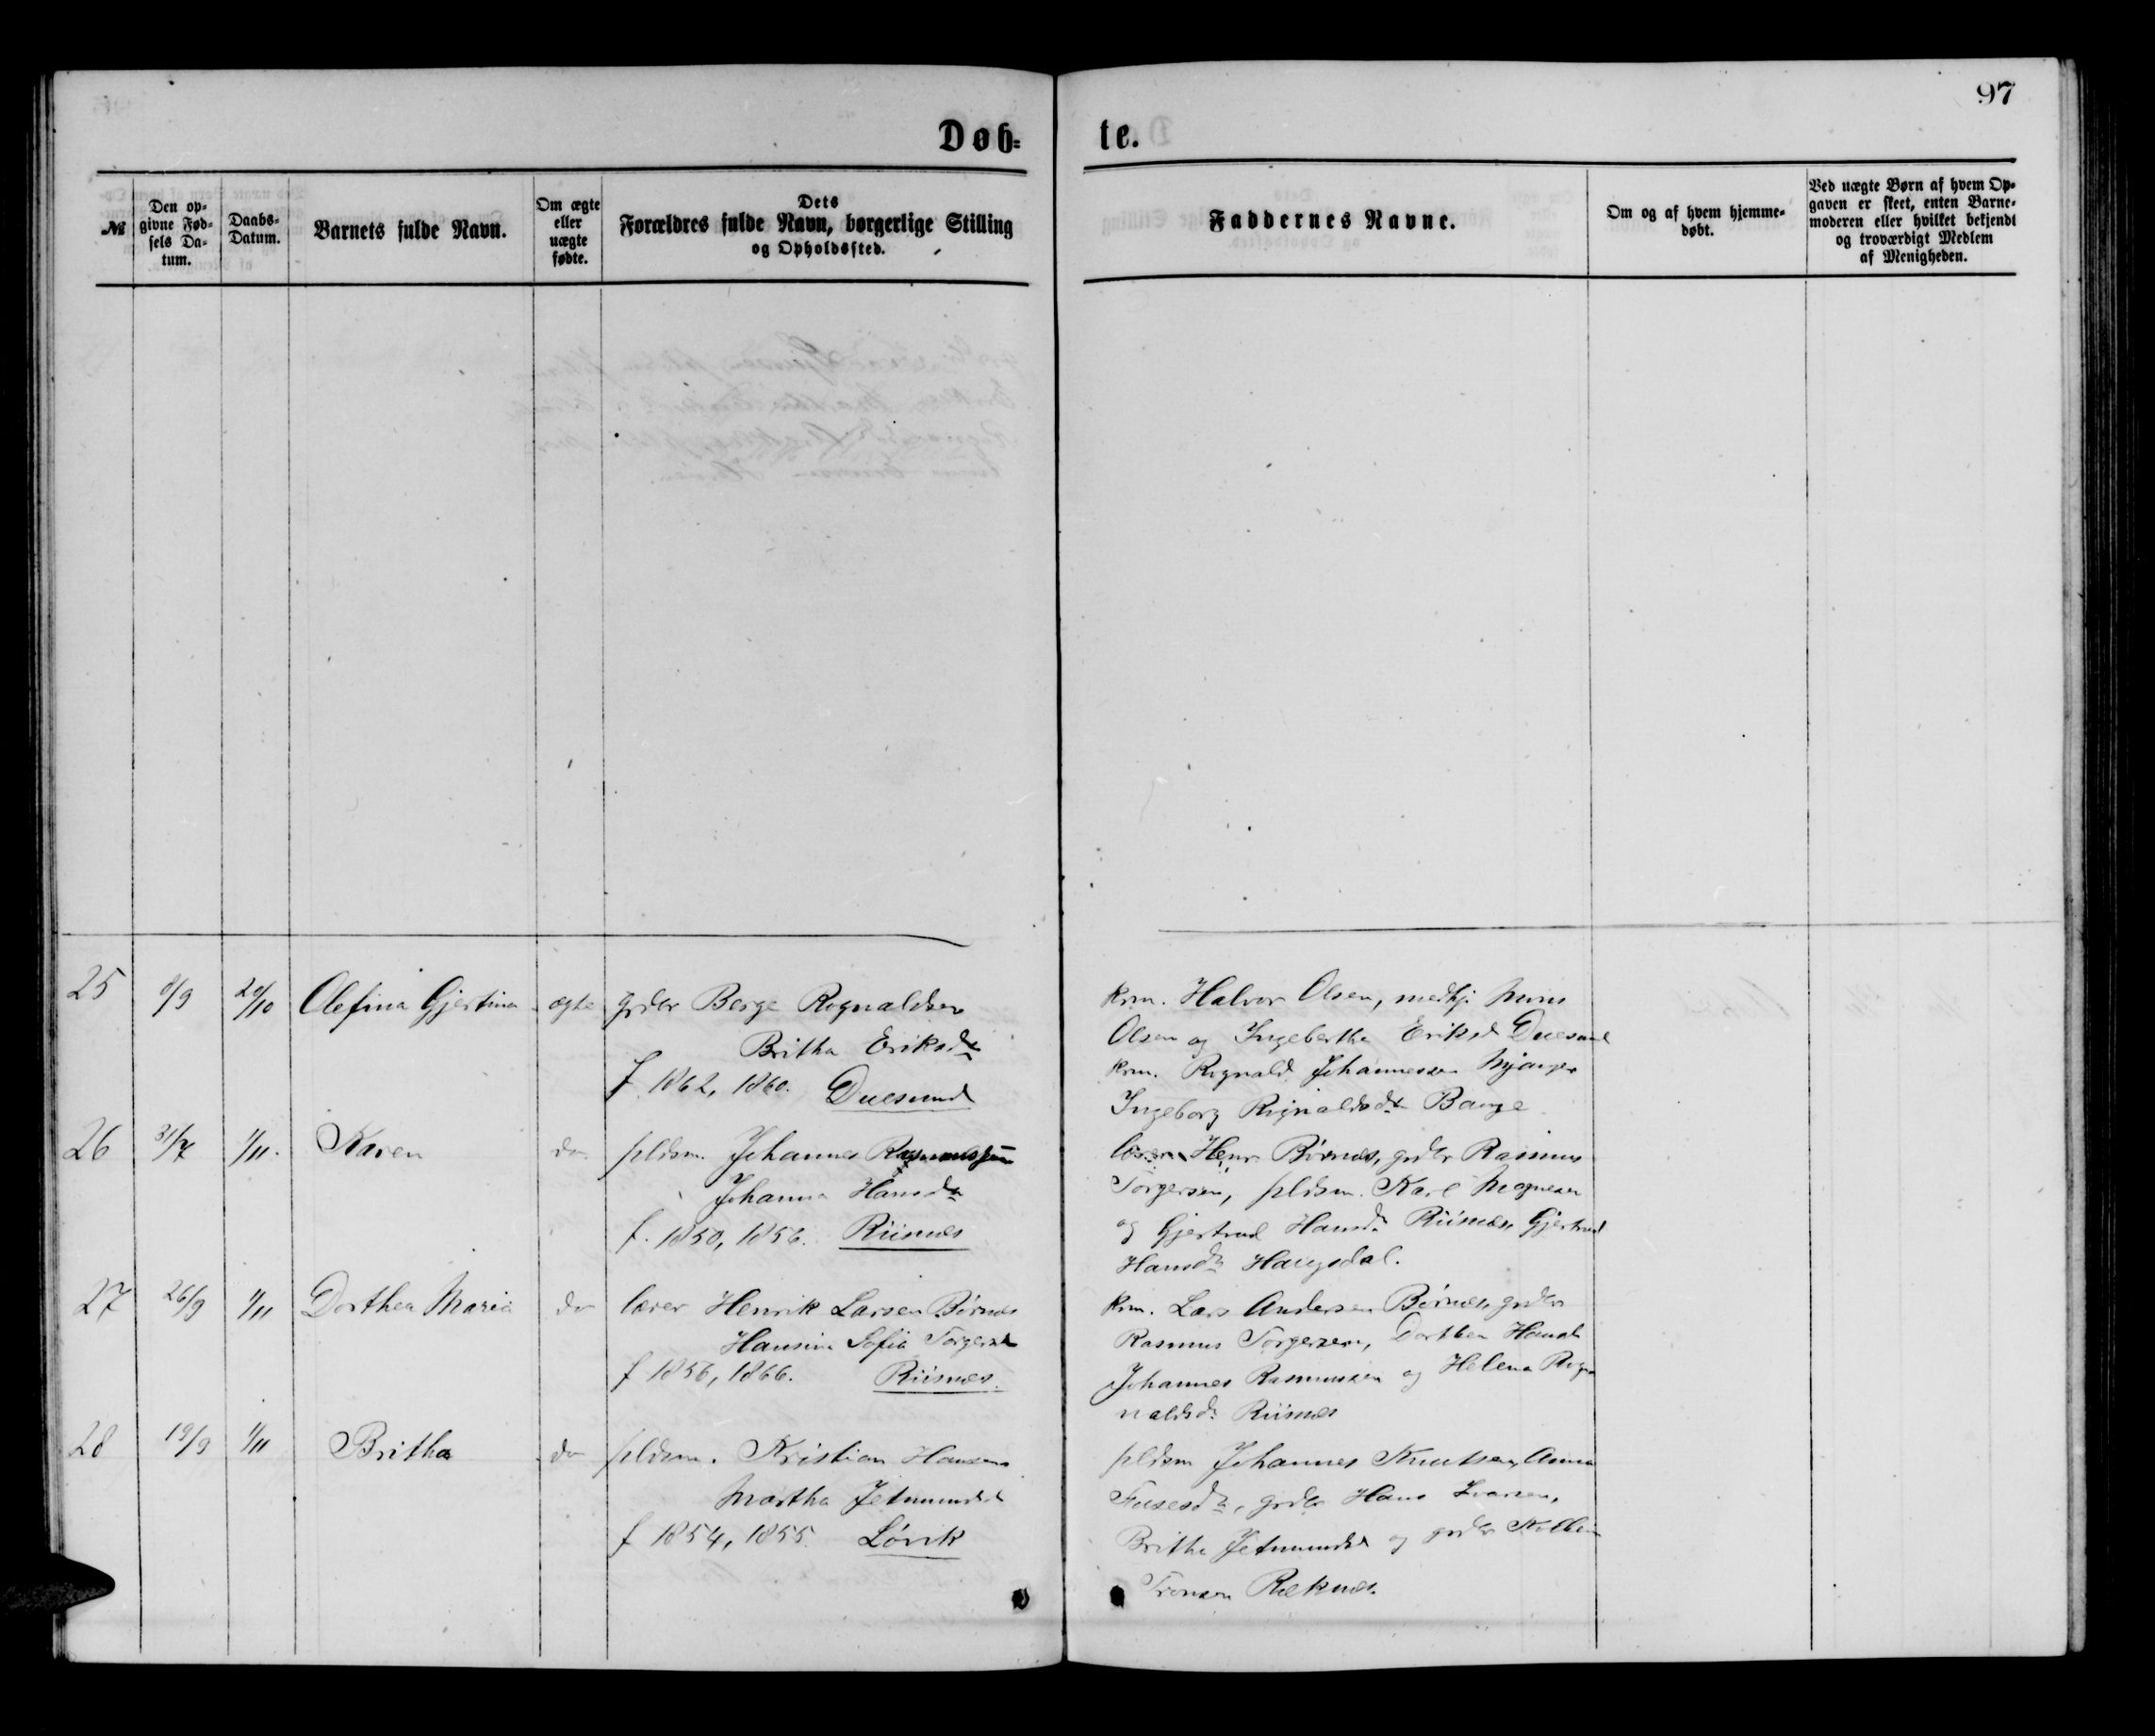 97
Døb-
te.
№
Den op-
givne Fød-
sels Da-
tum.
Daabs-
Datum.
Barnets fulde Navn.
Om ægte
eller
uægte
fødte.
Dets
Forældres fulde Navn, borgerlige Stilling
og Opholdssted.
Faddernes Navne.
Om og af hvem hjemme-
døbt.
Ved uægte Børn af hvem Op-
gaven er skeet, enten Barne-
moderen eller hvilket bekjendt
og troværdigt Medlem
af Menigheden.
25 8/9 Olefina Gjertina ægte grdbr Berge Rognaldsen
Britha Eriksdtr
f 1862, 1860. Duesund
krm. Halvor Olsen, medhj. Mons
Olsen og Ingebertha Eriksd Duesund
krm. Rognald Johannessen Mjanger
Ingeborg Rognaldsdtr Bauge
26 31/7 1/11. Karen do pldsm. Johannes Rasmussen
Johanna Hansdtr
f. 1850, 1856. Riisnes
lærer Henr. Børnes, grdbr Rasmus
Torgersen, pldsm. Karl Mognesen
og Gjertrud Hansdr Riisnes, Gjertrud
Hansdr Haugsdal.
27 26/9 1/11 Dorthea Maria do lærer Henrik Larsen Børnes
Hansine Sofia Torgersd
f 1856, 1866. Riisnes.
krm. Lars Andersen Børnes, grdbr
Rasmus Torgersen, Dorthea Hansd
Johannes Rasmussen og Helena Rogn
naldsdr Riisnes
28 19/9 1/11 Britha do pldsm. Kristian Hansen
Martha Jetmundsd
f 1854, 1855. Løvik
pldsm Johannes Knutsen, Anna
grdbr Hans Ivarsen,
Britha Jetmundsd og grdbr
Tronsen Ræknes.